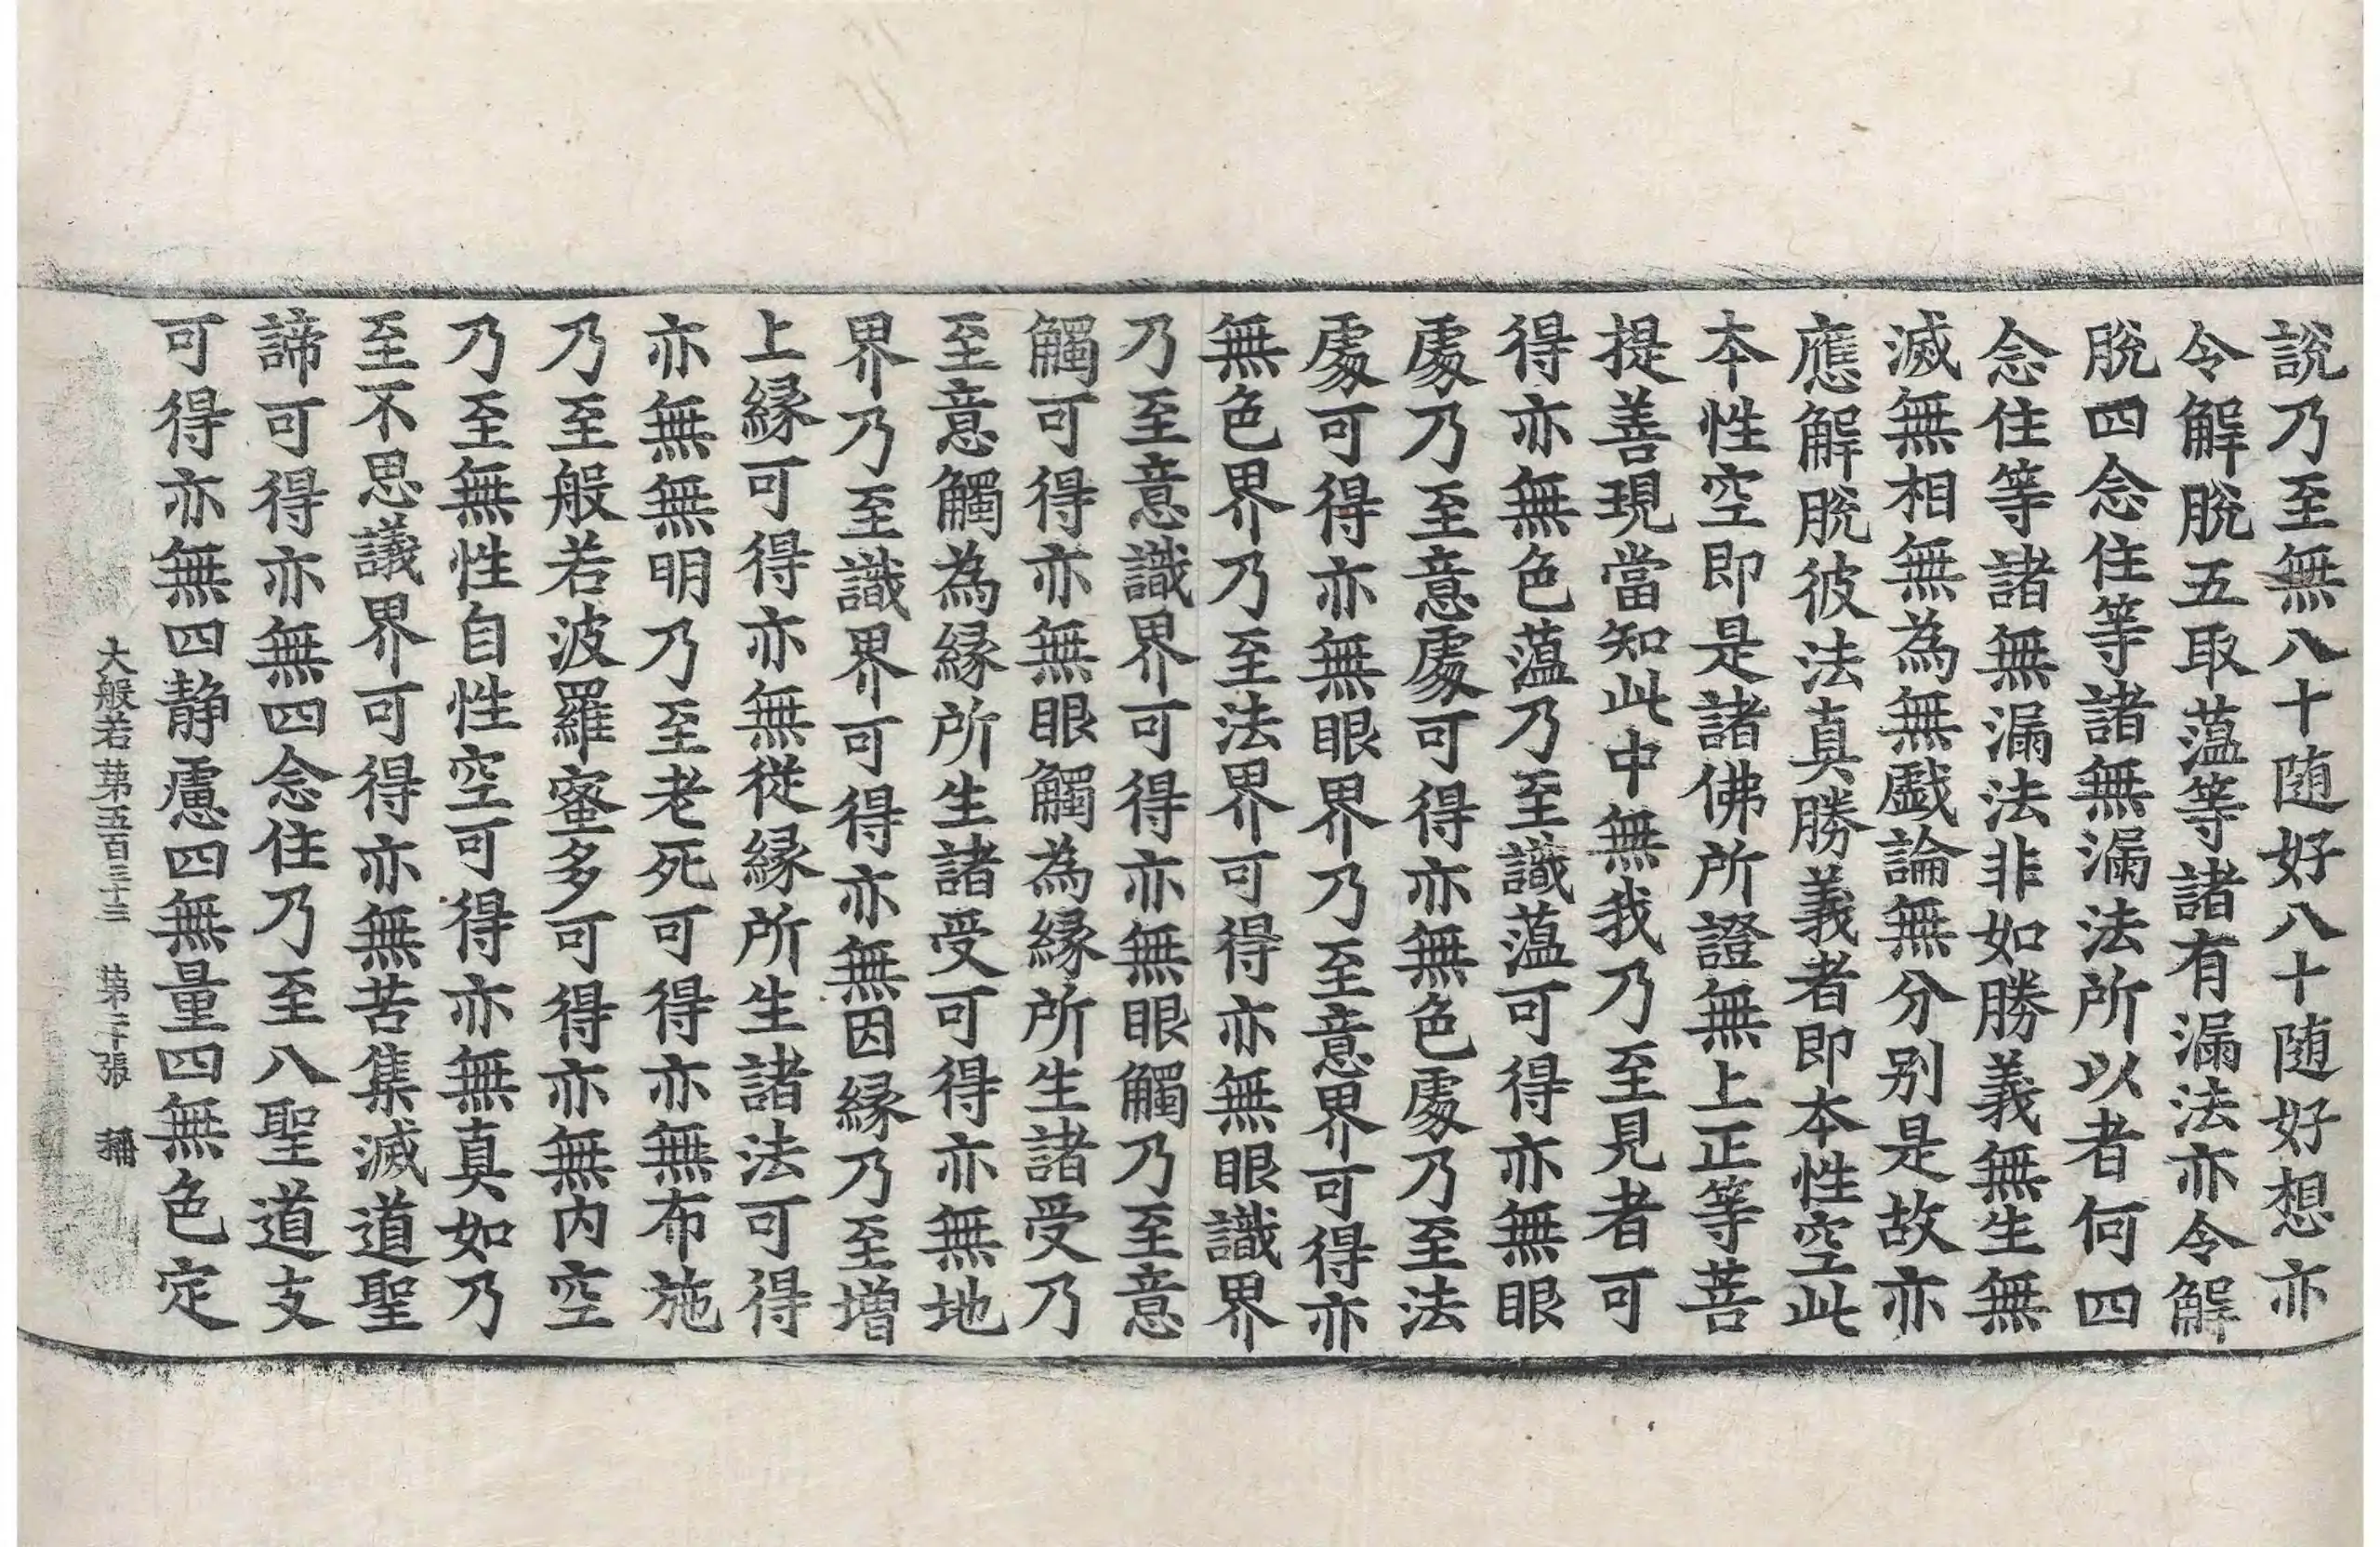 說乃至無八十随好八十随好想亦
令解脫五取蕰等諸有漏法亦令解
脫四念住等諸無漏法所以者何四
念住等諸無漏法非如勝義無生無
滅無相無為無戲論無分别是故亦
應解脫彼法真勝義者即本性空此
本性空即是諸佛所證無上正等菩
提善現當知此中無我乃至見者可
得亦無色蕰乃至識蕰可得亦無眼
處乃至意處可得亦無色處乃至法
處可得亦無眼界乃至意界可得亦
無色界乃至法界可得亦無眼識界
乃至意識界可得亦無眼觸乃至意
觸可得亦無眼觸為緣所生諸受乃
至意觸為緣所生諸受可得亦無地
界乃至識界可得亦無因緣乃至增
上緣可得亦無從緣所生諸法可得
亦無無明乃至老死可得亦無布施
乃至般若波羅蜜多可得亦無内空
乃至無性自性空可得亦無真如乃
至不思議界可得亦無苦集滅道聖
諦可得亦無四念住乃至八聖道支
可得亦無四静慮四無量四無色定
大般若苐五百三十三 苐二十張